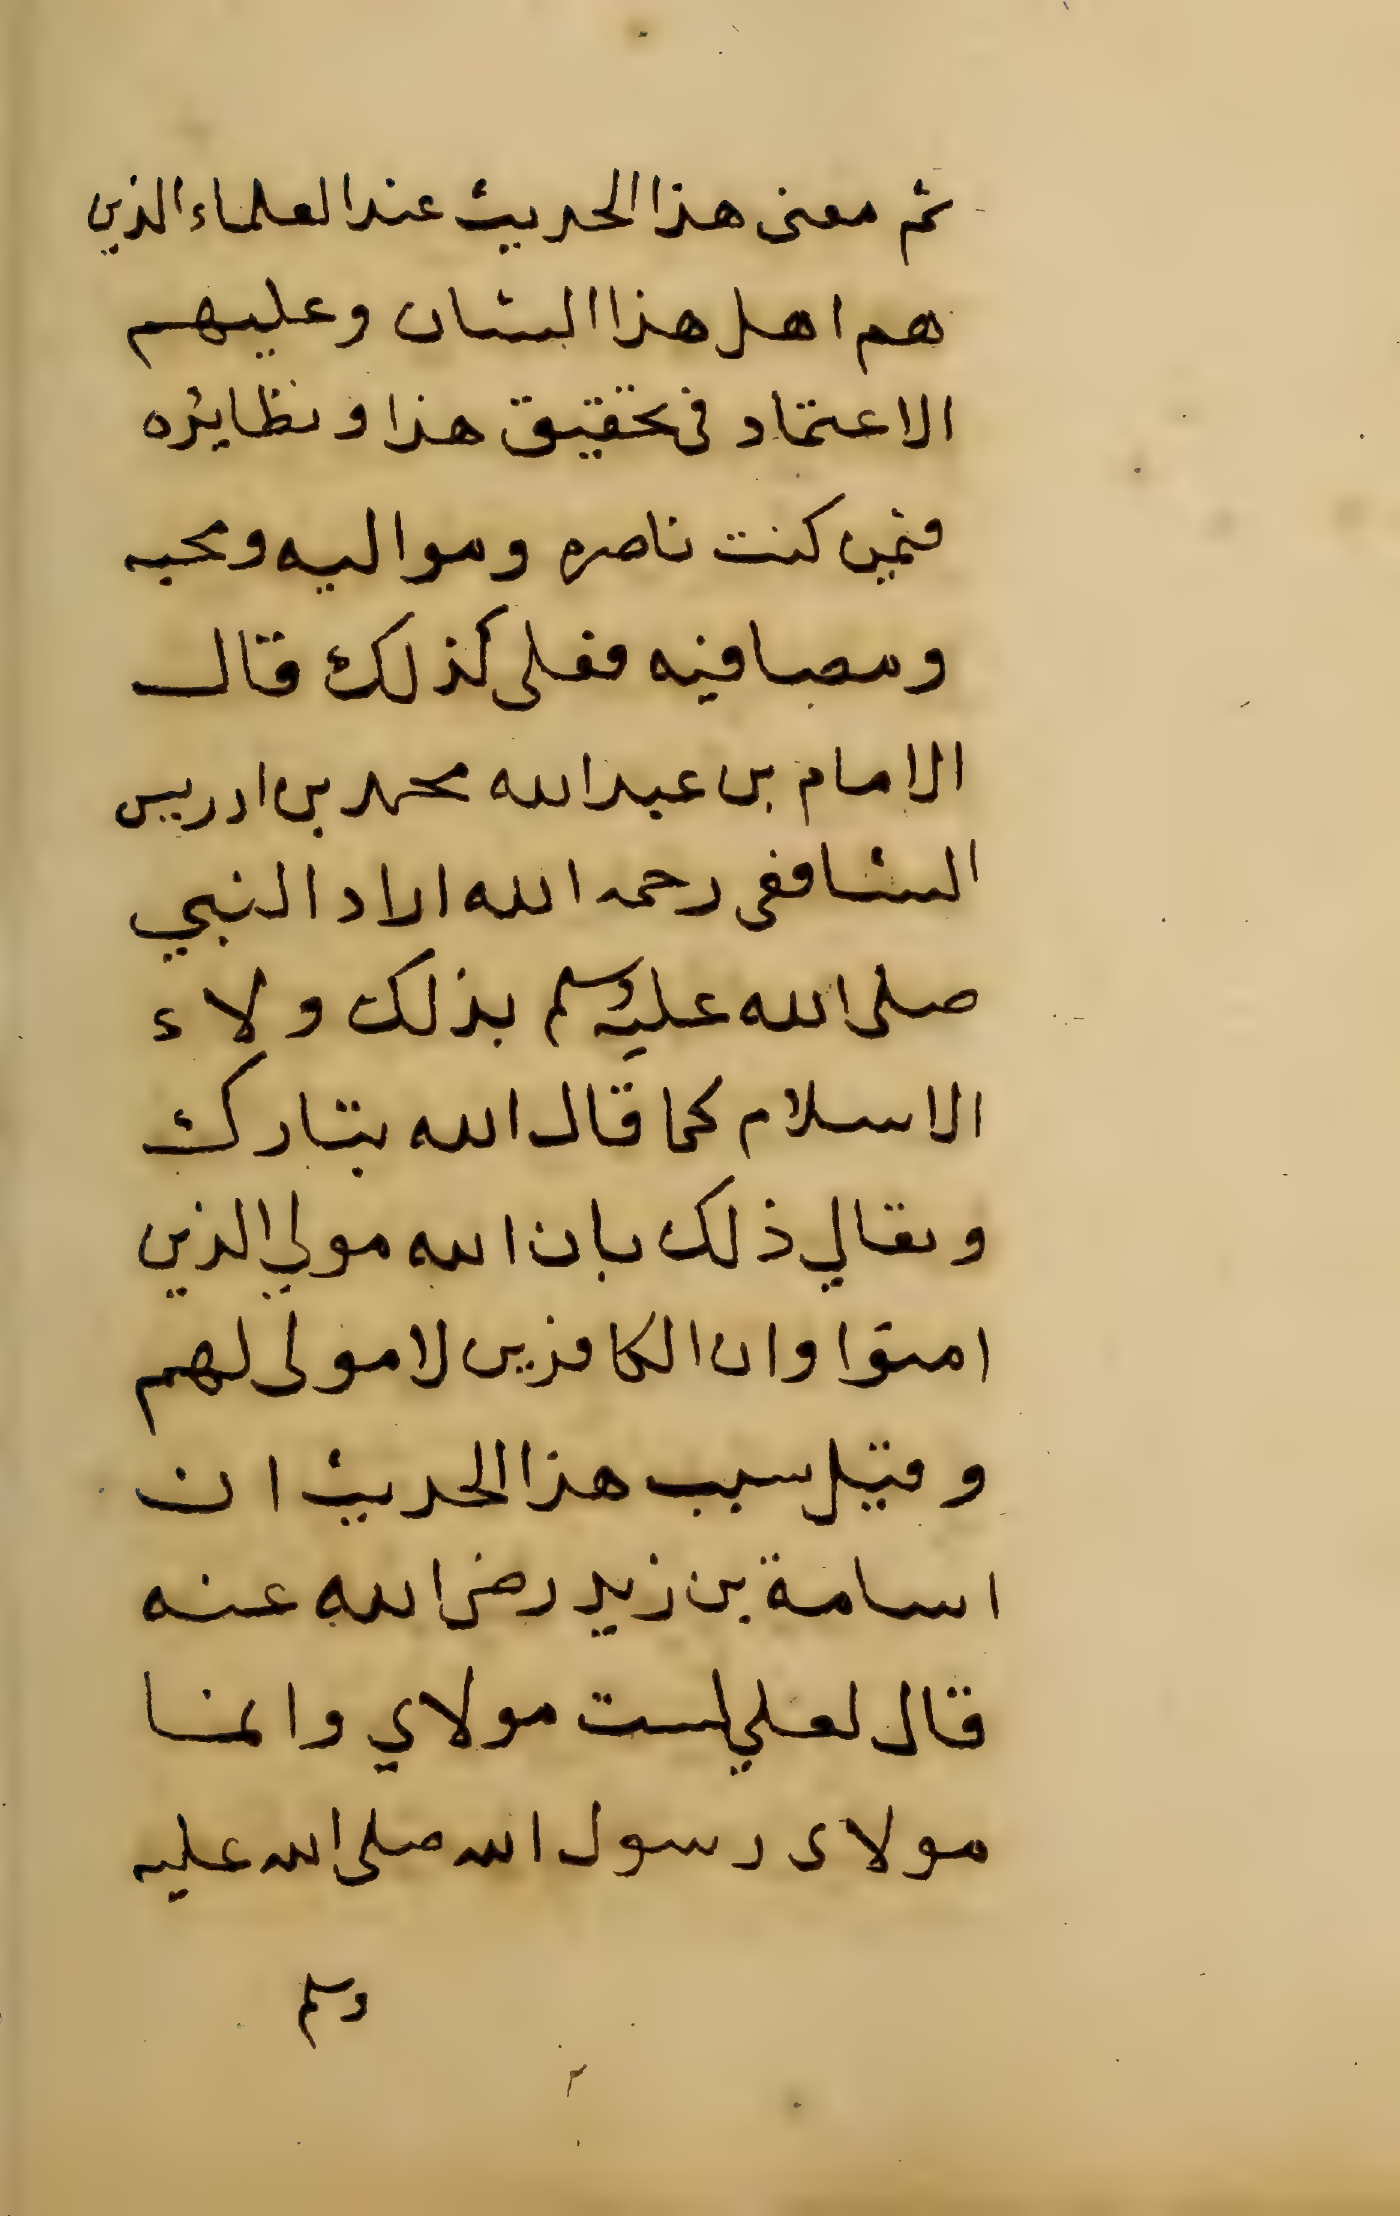 ثم معنى هذا الحديث عند العلماء الذين
هم اهل هذا الشان وعليهم
الاعتماد في تحقيق هذا ونظايره
فمن كنت ناصره ومواليه ومحبه
ومصافيه فعلى كذلك قال
الامام بن عبد الله محمد بن ادريس
الشافعى رحمه الله اراد النبي
صلى الله عليه وسلم بذلك ولاء
الاسلام كما قال الله تبارك
وتعالي ذلك بان الله مولي الذين
امنوا وان الكافرين لا مولى لهم
وقيل سبب هذا الحديث ان
اسامة بن زيد رضى الله عنه
قال لعلي لست مولاي وانما
مولاى رسول الله صلى الله عليه
وسلم